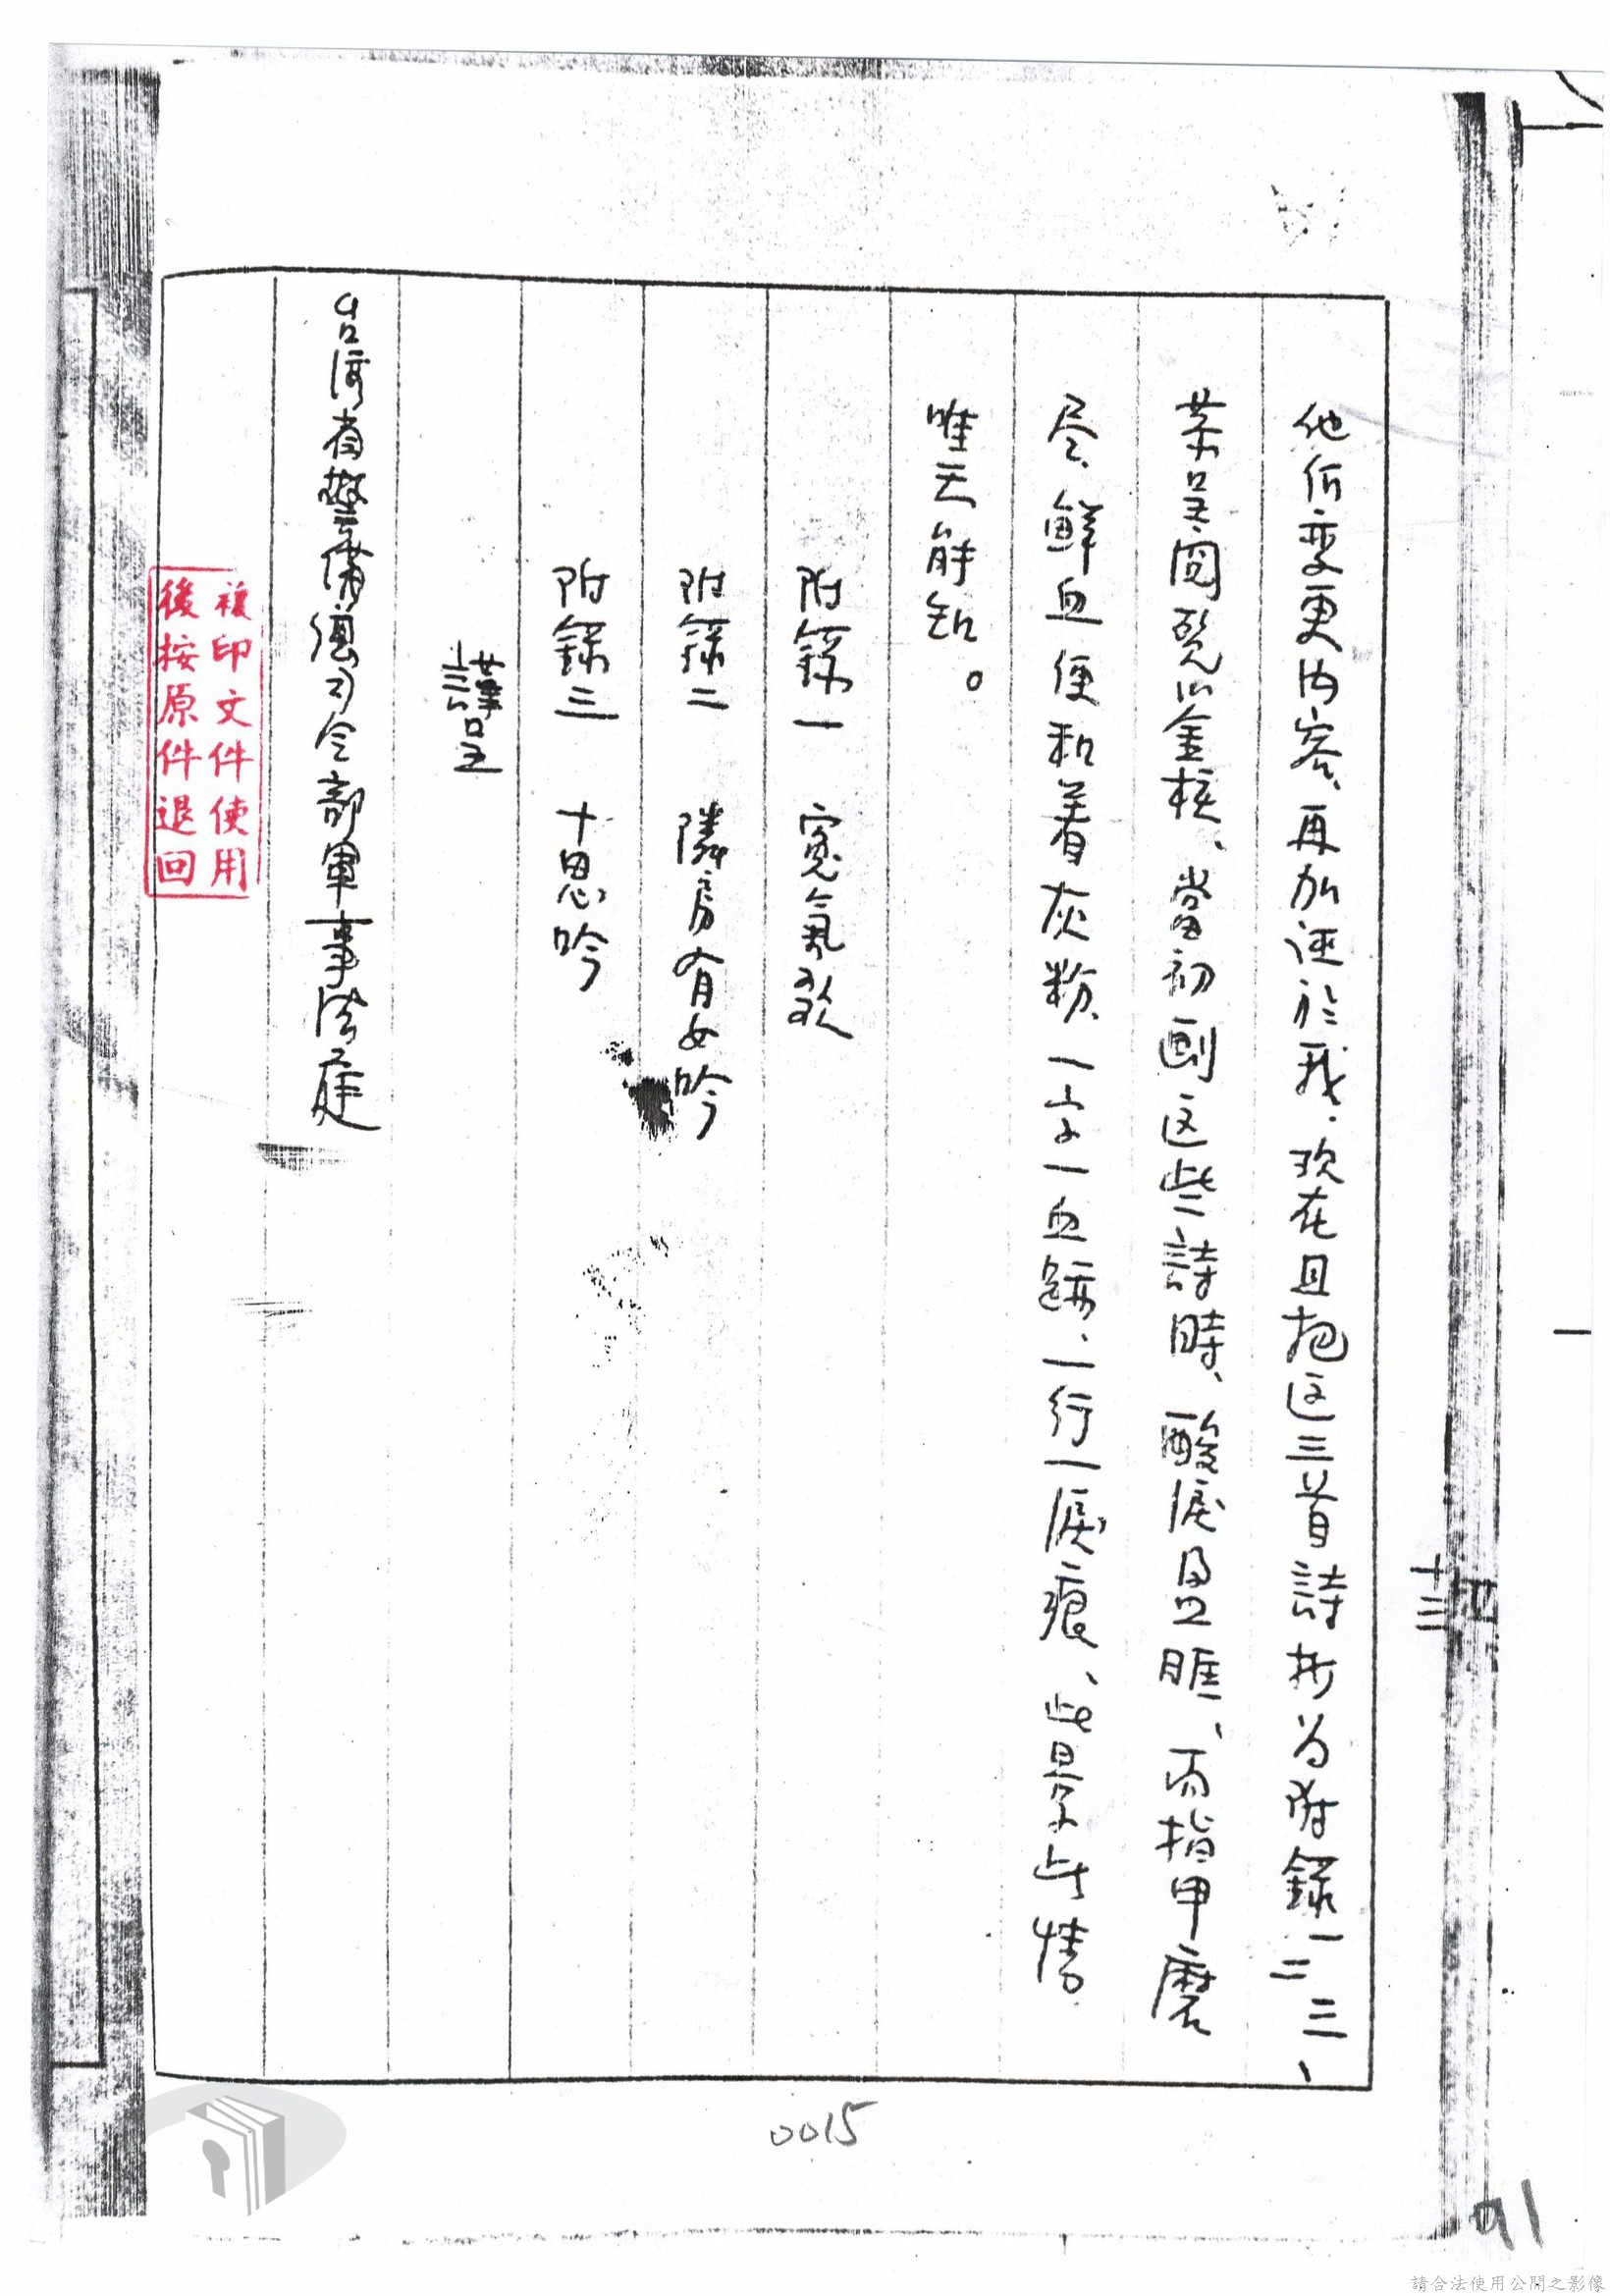 他們変更内容、再加诬於我. 現在且抱这三首詩抄为附錄一二三、
恭呈閱覧以鉴核、當初劃这些詩時、酸淚盈眶、而指甲磨
尽、鮮血便和着灰粉、一字一血跡、一行一淚痕、此景此情
唯天能知。
附錄一 冤氣歌
附錄二 隣房有女吟
附錄三 十思吟
謹呈
台湾省警備總司令部軍事法庭
複印文件使用
後按原件退回
十三
四
0015
91
請合法使用公開之影像